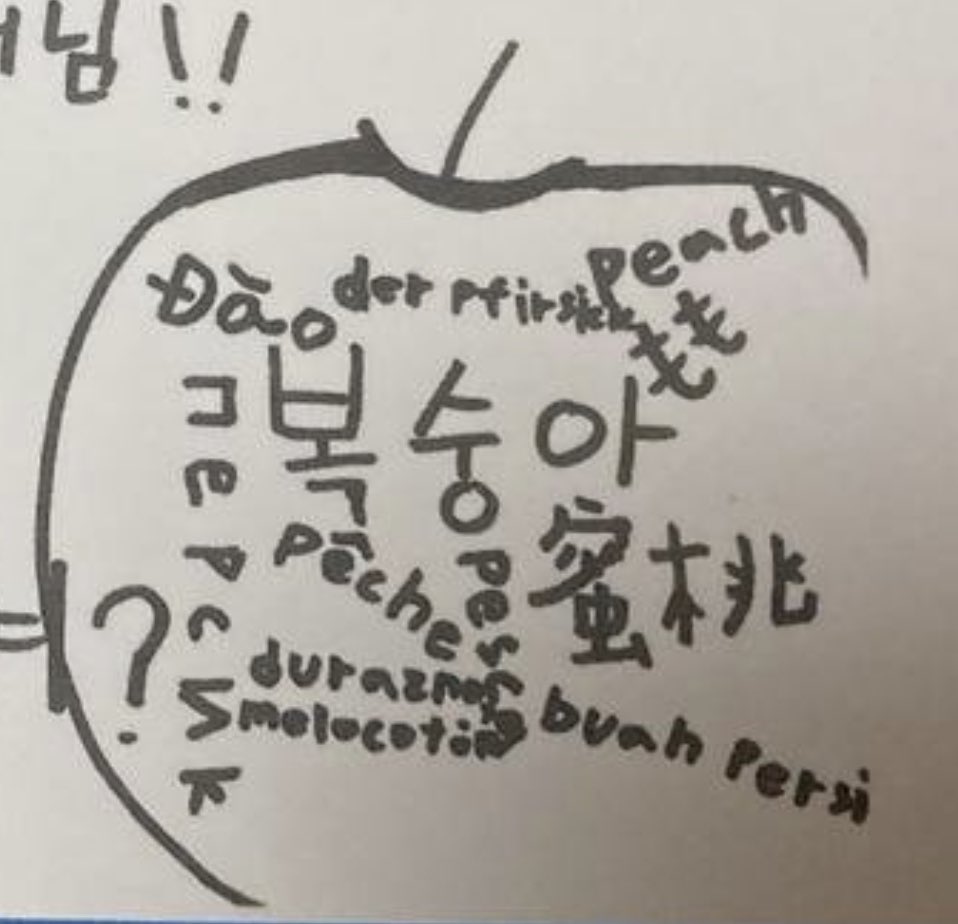 님!!
peach
Đào der pfirsich
もも
복숭아
персик
pêche
蜜桃
durazno
melocotón
buah persi
?